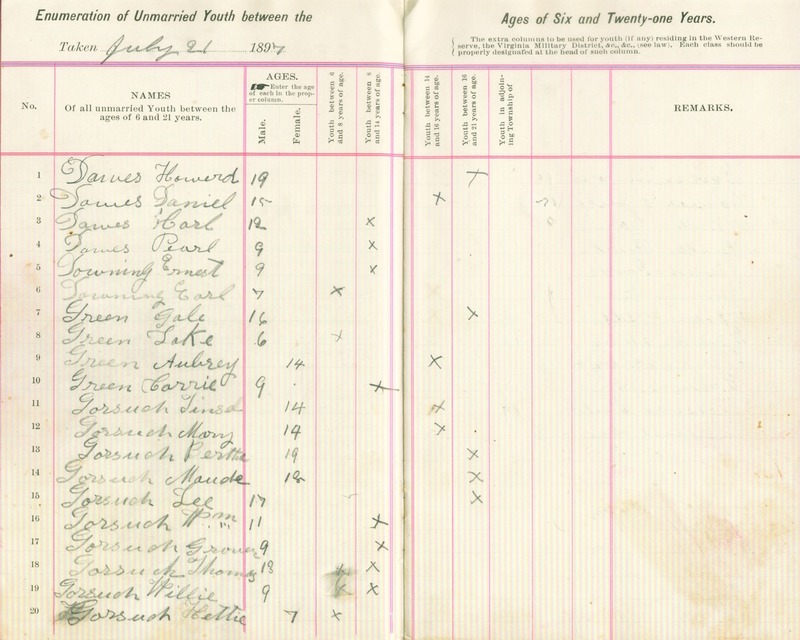 Enumeration of Unmarried Youth between the Ages of Six and Twenty-one Years.
Taken July 21 1897
The extra columns to be used for youth (if any) residing in the Western Re-
serve, the Virginia Military District, &c., &c., (see law). Each class should be
properly designated at the head of such column.
No.
NAMES
Of all unmarried Youth between the
ages of 6 and 21 years.
AGES.
Enter the age
of each in the prop-
er column.
Male.
Female.
Youth between 6
and 8 years of age.
Youth between 8
and 14 years of age.
Youth between 14
and 16 years of age.
Youth between 16
and 21 years of age.
Youth in adjoin-
ing Township of
REMARKS.
1 Dawes Howard 19 x
2 Dawes Daniel 15 x
3 Dawes Karl 12 x
4 Dawes Pearl 9 x
5 Downing Ernest 9 x
6 Downing Earl 7 x
7 Green Gale 16 x
8 Green Lake 6 x
9 Green Aubrey 14 x
10 Green Carrie 9 x
11 Gorsuch 14 x
12 Gorsuch Mary 14 x
13 Gorsuch Bertha 19 x
14 Gorsuch Maude 18 x
15 Gorsuch Lee 17 x
16 Gorsuch Wm 11 x
17 Gorsuch Grover 9 x
18 Gorsuch Thomas 13 x x
19 Gorsuch Willie 9 x x
20 Gorsuch Hettie 7 x